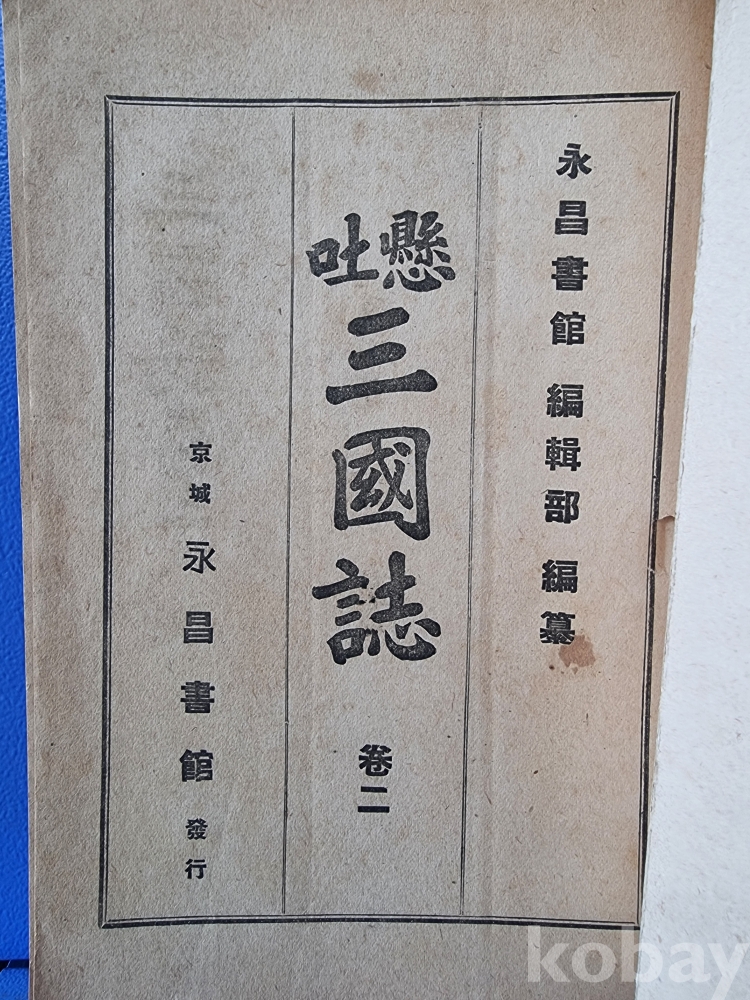 永昌書館 編輯部 編纂
懸吐
三國誌 卷二
京城 永昌書館 發行
kobay